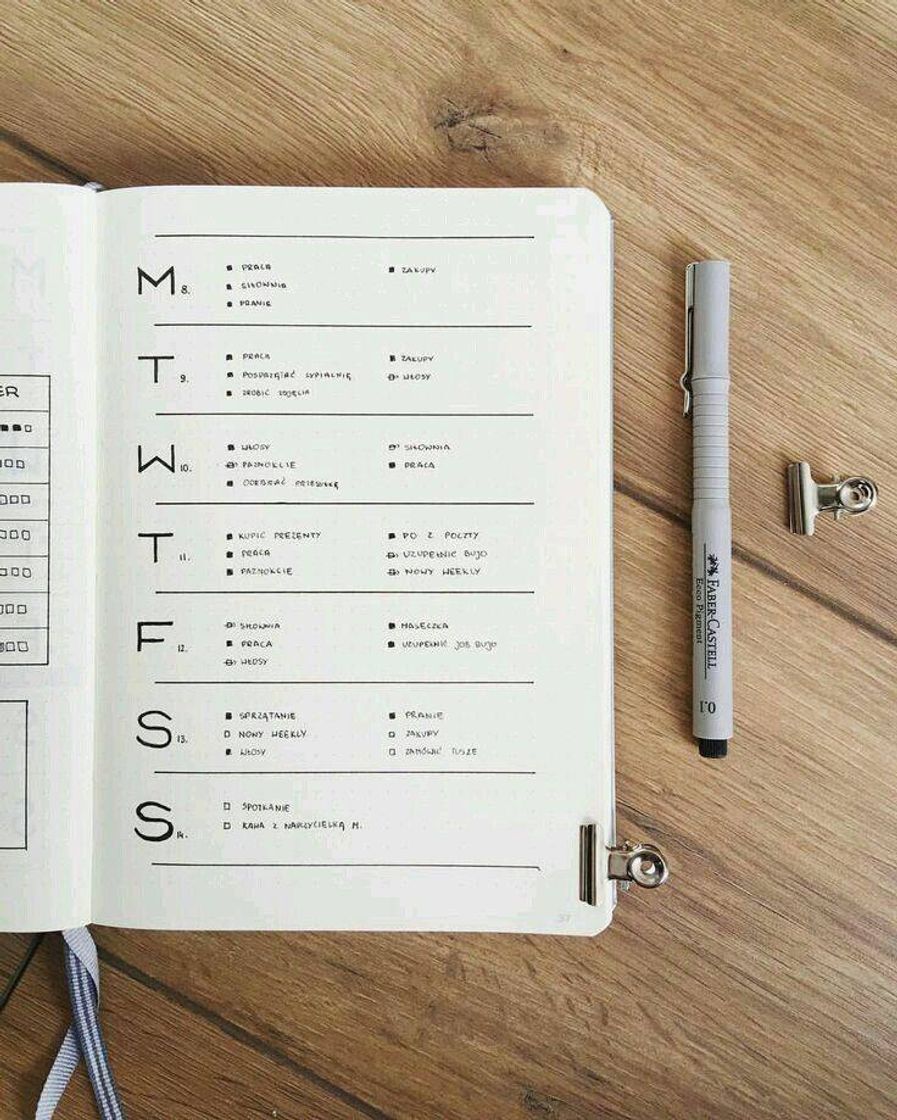 ER
M 8.
PRACA
SIŁOWNIA
PRANIE
ZAKUPY
T 9.
PRACA
POSPRZĄTAĆ SYPIALNIĘ
ZROBIĆ ZDJĘCIA
ZAKUPY
WŁOSY
W 10.
WŁOSY
PAZNOKCIE
ODEBRAĆ PRZESYŁKĘ
SIŁOWNIA
PRACA
T 11.
KUPIĆ PREZENTY
PRACA
PAZNOKCIE
PO Z POCZTY
UZUPEŁNIĆ BUJO
NOWY WEEKLY
F 12.
SIŁOWNIA
PRACA
WŁOSY
MASECZKA
UZUPEŁNIĆ JOB BUJO
S 13.
SPRZĄTANIE
NOWY WEEKLY
WŁOSY
PRANIE
ZAKUPY
ZAMÓWIĆ TUSZE
S 14.
SPOTKANIE
KAWA Z NAUCZYCIELKĄ M.
37
FABER-CASTELL
Ecco Pigment
0.1